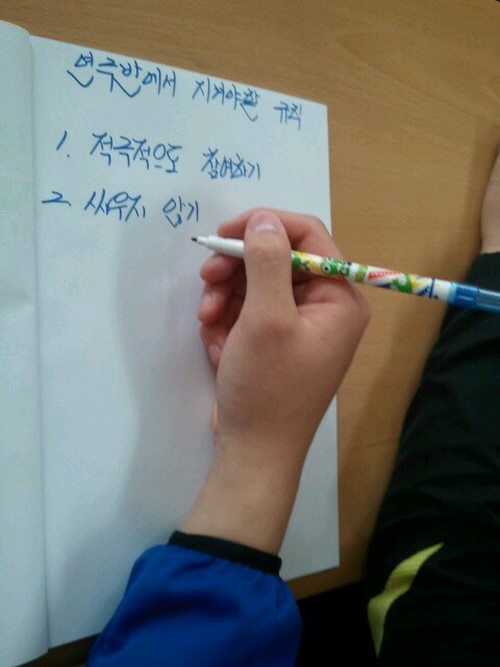 연주반에서 지켜야할 규칙
1. 적극적으로 참여하기
2. 싸우지 않기